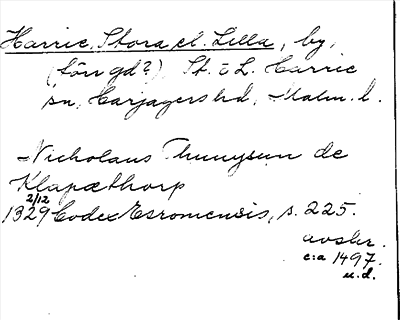 Harrie, Stora el. Lilla, by,
(förr gd?), St. o L. Harrie
sn, Harjagers hd, Malm. l.
Nicholaus Thunysun de
Klapæthorp
2/12
1329 Codex Esromensis, s. 225.
avskr.
c:a 1497.
u.d.